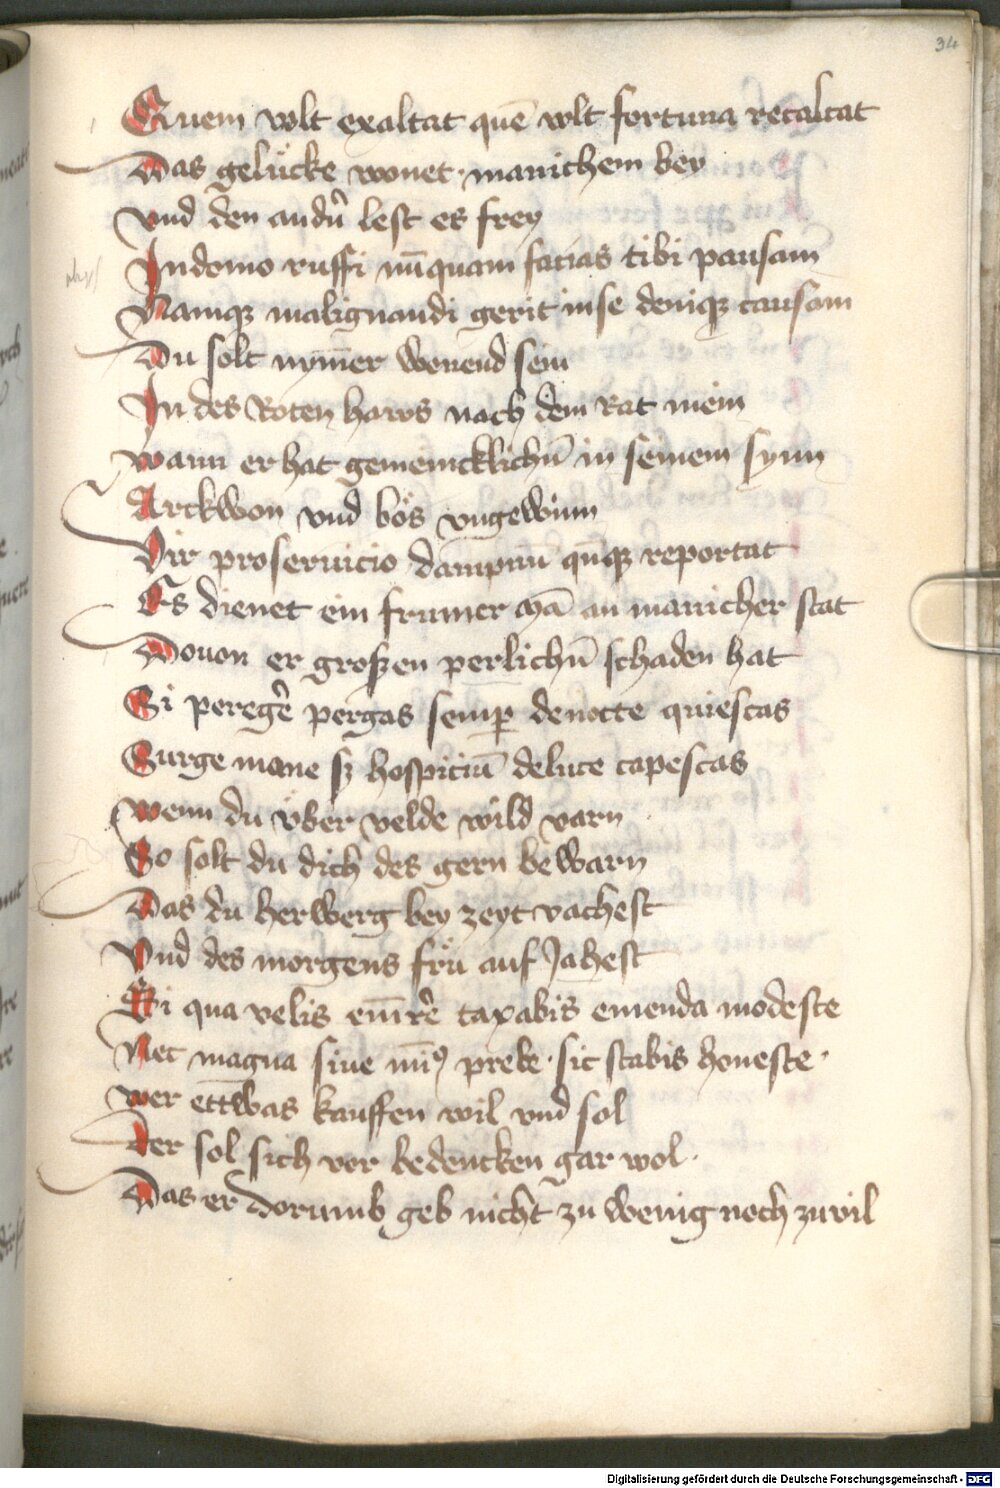 34
Quem volt exaltat quē wlt fortuna recalcat
Das gelücke wonet manichem bey
Vnd den andn̄ lest es frey
In domo ruffi nūquam facias tibi pausam
Namqꝫ malignandi gerit in se deniqꝫ causam
Du solt nym̄er wenend sein
In des Roten haws nach dem Rat mein
Wann er hat gemeincklichn̄ in seinem synn
Arckwon vnd bös vngewinn
Vir pro seruicio dampnū qn̄qꝫ reportat
Es dienet ein frumer mā an manicher stat
Douon er großen perlichn̄ schaden hat
Si peregre pergas semꝑ de nocte quiescas
Surge mane sꝫ hospiciū de luce capescas
Wenn du vber velde wild varn
So solt du dich des gern bewarn
Das du herwerg bey zeyt vachest
Vnd des morgens frü auf Jahest
Si qua velis em̄re taxabis emenda modeste
Nec magna siue mīꝰ prebe sic stabis honeste
Wer ettwas kauffen wil vnd sol
Der sol sich vor bedencken gar wol
Das er dorumb geb nicht zu wenig noch zuvil
Digitalisierung gefördert durch die Deutsche Forschungsgemeinschaft - DFG